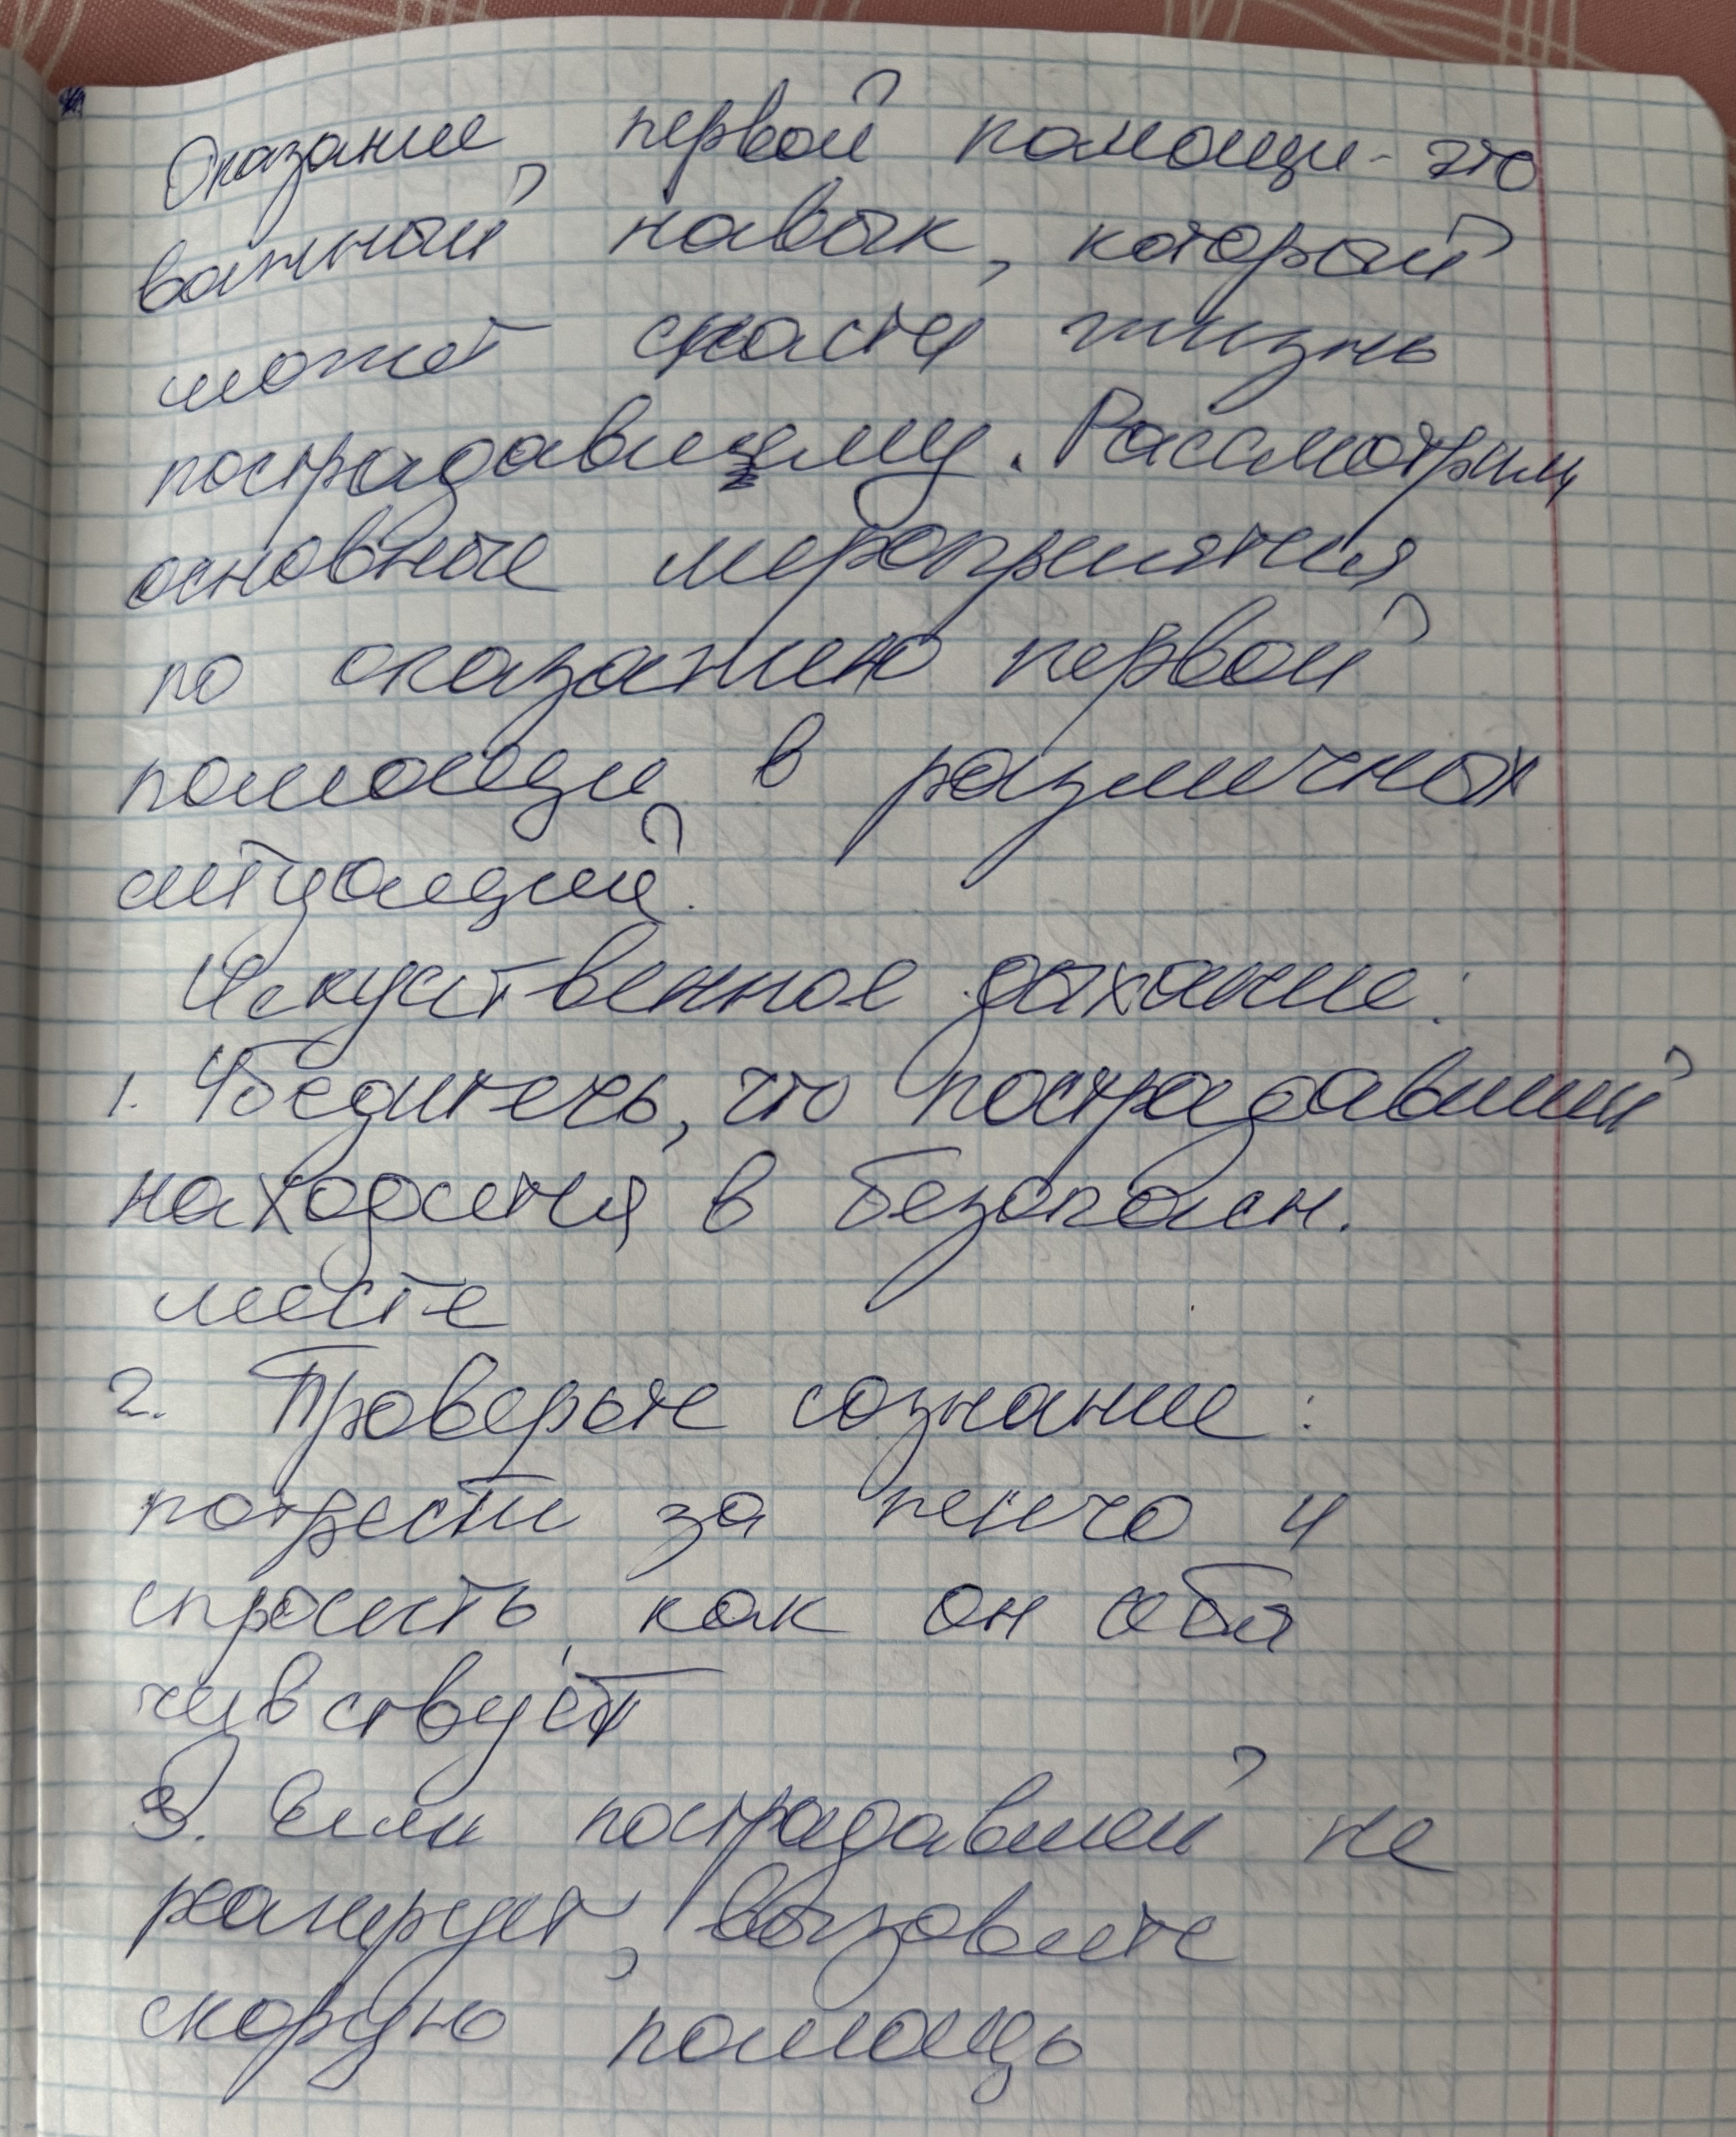 Оказание первой помощи - это
важный навык, который
может спасти жизнь
пострадавшему. Рассмотрим
основные мероприятия
по оказанию первой
помощи в различных
ситуаций.
Искуственное дыхание:
1. Убедитесь, что пострадавший
находится в безопасн.
месте
2. Проверьте сознание:
потрести за печо и
спросить, как он себя
чувствует
3. Если пострадавший не
реагирует, вызовите
скорую помощь